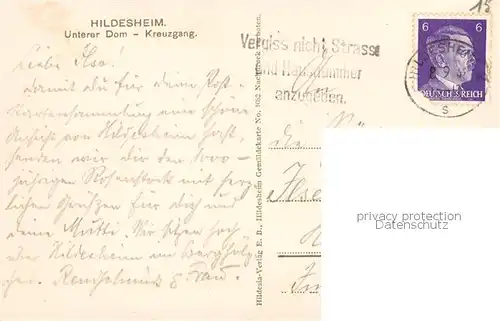 HILDESHEIM.
Unterer Dom – Kreuzgang.
15
Vergiss nicht Strasse
und Hausnummer
anzugeben.
6 6
DEUTSCHES REICH
HILDESHEIM
s
Liebe Ilse!
Damit du für deine Post-
kartensammlung eine schöne
Ansicht von Hildesheim hast
senden wir dir den 1000-
jährigen Rosenstock mit herz-
lichen Grüßen für dich und
deine Mutti. Wir sitzen hoch
über Hildesheim im
Hildesia-Verlag E. B., Hildesheim Gemäldekarte No. 1052 Nachdruck verboten.
privacy protection
Datenschutz